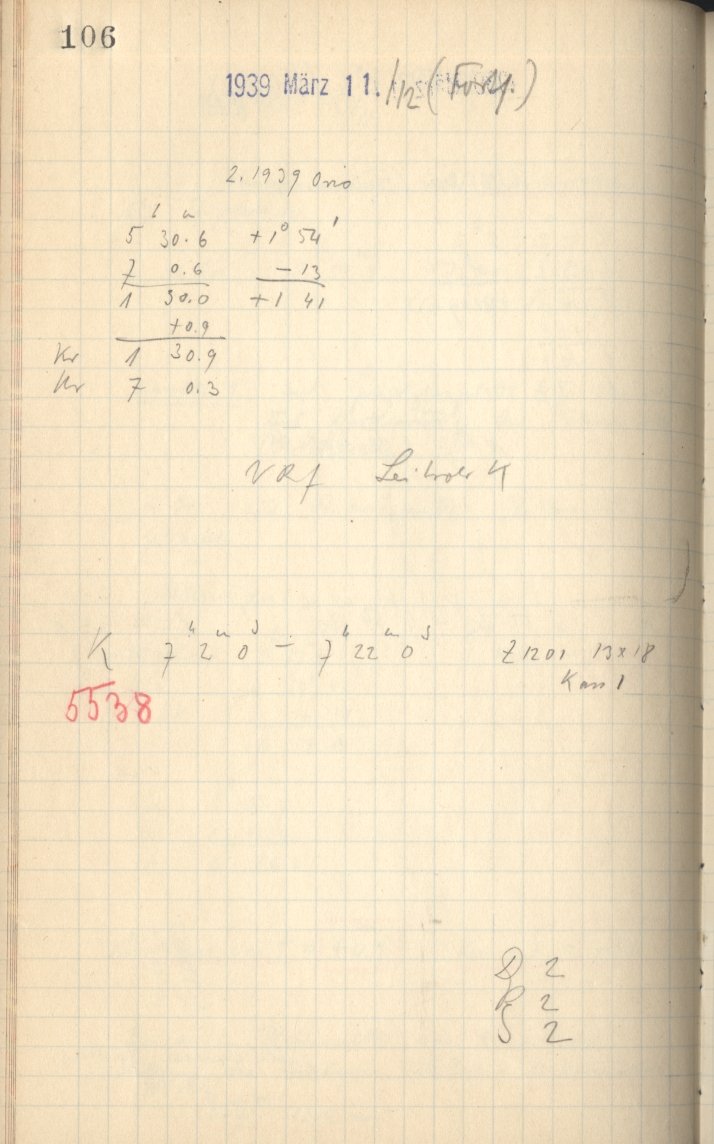 106
1939 März 11./12 (Forts.)
2.1939 Orio
h m
5 30.6 +1° 54'
7 0.6 -13
1 30.0 +1 41
+0.9
Kr 1 30.9
Ur 7 0.3
K 7h 2m 0s - 7h 22m 0s Z 1201 13x18
Kass 1
5538
D 2
R 2
S 2